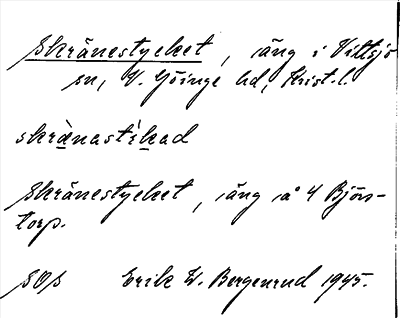 Skränestycket, äng i Vittsjö
sn, V. Göinge hd, Krist. l.
skrànastìkad
Skränestycket, äng å 4 Björs-
torp.
SOS Erik W. Bergenrud 1945.